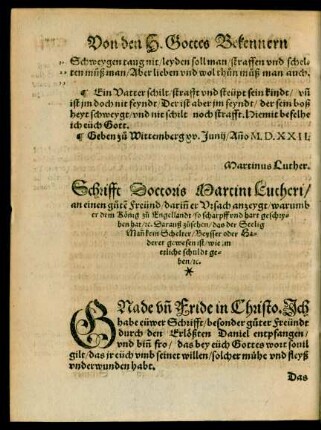 Von den H. Gottes Bekennern
Schweygen taug nit/leyden soll man/straffen vnd schel-
ten müß man/Aber lieben vnd wol thůn müß man auch.
¶ Ein Vatter schilt/strafft vnd steüpt sein kindt/ vñ
ist jm doch nit feyndt/Der ist aber jm feyndt/ der sein boß
heyt schweygt/vnd nit schilt noch strafft. Hiemit beselhe
ich eüch Gott.
¶ Geben zů Wittenberg xv. Junij/Año M.D.XXII.
Martinus Luther.
Schrifft Doctoris Martini Lutheri/
an einen gůtẽ Freünd/dariñ er Vrsach anzeygt/warumb
er dem König zů Engellandt so scharpff vnd hart geschry-
ben hat/ꝛc. Darauß zůsehen/das der Seelig
Mañ kein Schelter/Beysser oder Ha-
derer gewesen ist/wie jm
etliche schuldt ge-
ben/ꝛc.
*
GNade vñ Fride in Christo. Ich
habe eüwer Schrifft/besonder gůter Freündt
durch den Erlößten Daniel entpfangen/
vnd biñ fro/ das bey eüch Gottes wort souil
gilt/das jr eüch vmb seinet willen/solcher mühe vnd fleyß
vnderwunden habt.
Das